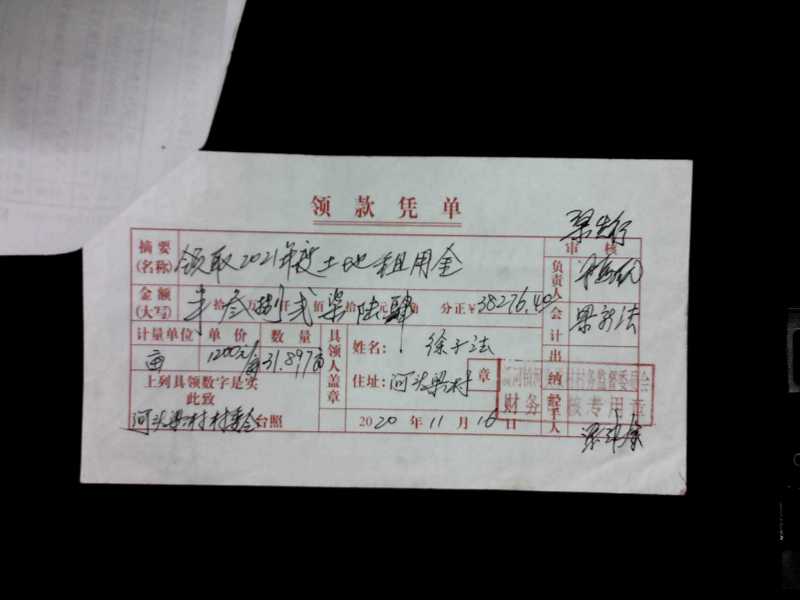 领款凭单
审核
摘要(名称) 领取2021年度土地租用金
金额(大写) 叁 拾 捌 仟 贰 佰 柒 拾 陆 元 肆 角 分 正 ¥38276.40
计量单位 单价 数量
亩 1200元/亩 31.897亩
上列具领数字是实
此致
河头梁村村委会台照
具领人盖章
姓名: 徐于法
住址: 河头梁村 章
2020年11月16日
负责人
会计 梁新法
出纳
经手人
村村务监督委员会
财务审核专用章